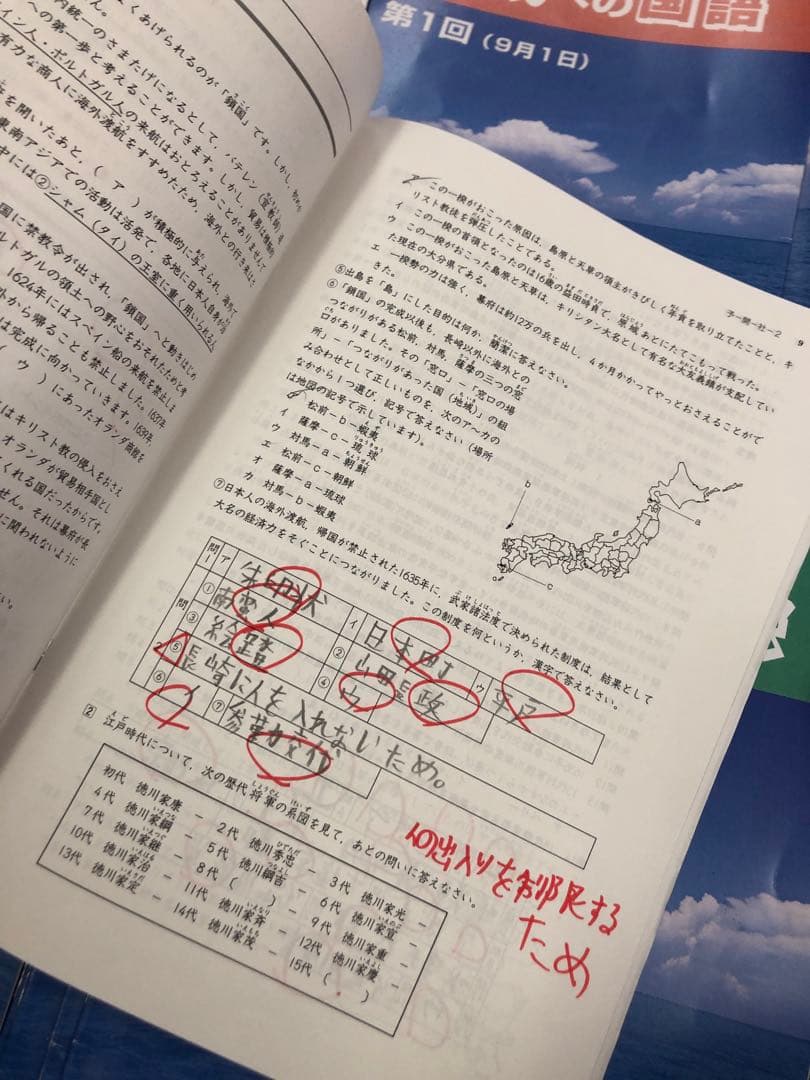 の国語
第1回(9月1日)
よくあげられるのが「鎖国」です。しかし、
内統一のさまたげになるとして、バテレン(宣教師)
への第一歩と考えることができます。しかし、貿易は
イン人・ポルトガル人の来航はおとろえることがありません
有力な商人に海外渡航をすすめたため、海外との行き来は
を開いたあと、(ア)が積極的に与えられ、海外で
東南アジアでの活動は活発で、各地に日本人自身が
中には②シャム(タイ)の王室に重く用いられる人
国に禁教令が出され、「鎖国」へと動きはじめ
ルトガルの領土への野心をおそれたためと考
1624年にはスペイン船の来航を禁止しま
外から帰ることも禁止しました。1637年
は完成に向かっていきます。1639年、
(ウ)にあったオランダ商館を
はキリスト教の侵入をおさえ
オランダが貿易相手国とし
くれる国だったからです。
せん。それは幕府が長
に関われないように
予-開-社-2
9
ア この一揆がおこった原因は、島原と天草の領主がきびしく年貢を取り立てたことと、キ
リスト教徒を弾圧したことである。
イ この一揆の首領となったのは16歳の益田時貞で、原城あとにたてこもって戦った。
ウ この一揆がおこった島原と天草は、キリシタン大名として有名な大友義鎮が支配してい
た現在の大分県である。
エ 一揆勢の力は強く、幕府は約12万の兵を出し、4か月かかってやっとおさえることがで
きた。
⑤出島を「島」にした目的は何か、簡潔に答えなさい。
⑥「鎖国」の完成以後も、長崎以外に海外との
つながりがある松前、対馬、薩摩の三つの窓
口がありました。その「窓口」-「窓口の場
所」-「つながりがあった国(地域)」の組
み合わせとして正しいものを、次のア~カの
なかから1つ選び、記号で答えなさい(場所
は地図の記号で示しています)。
ア 松前-b-蝦夷
イ 薩摩-c-琉球
ウ 対馬-a-朝鮮
エ 松前-c-朝鮮
オ 薩摩-a-琉球
カ 対馬-b-蝦夷
b
a
c
⑦日本人の海外渡航、帰国が禁止された1635年に、武家諸法度で決められた制度は、結果として
大名の経済力をそぐことにつながりました。この制度を何というか、漢字で答えなさい。
問1 ア 朱印状 イ 日本町 ウ 平戸
問2 ① 南蛮人 ② 山田長政
③ 絵踏 ④ ウ
⑤ 長崎に人を入れないため。
⑥ イ ⑦ 参勤交代
人の出入りを制限する
ため
② 江戸時代について、次の歴代将軍の系図を見て、あとの問いに答えなさい。
初代 徳川家康 - 2代 徳川秀忠 - 3代 徳川家光 -
4代 徳川家綱 - 5代 徳川綱吉 - 6代 徳川家宣 -
7代 徳川家継 - 8代( ) - 9代 徳川家重 -
10代 徳川家治 - 11代 徳川家斉 - 12代 徳川家慶 -
13代 徳川家定 - 14代 徳川家茂 - 15代( )